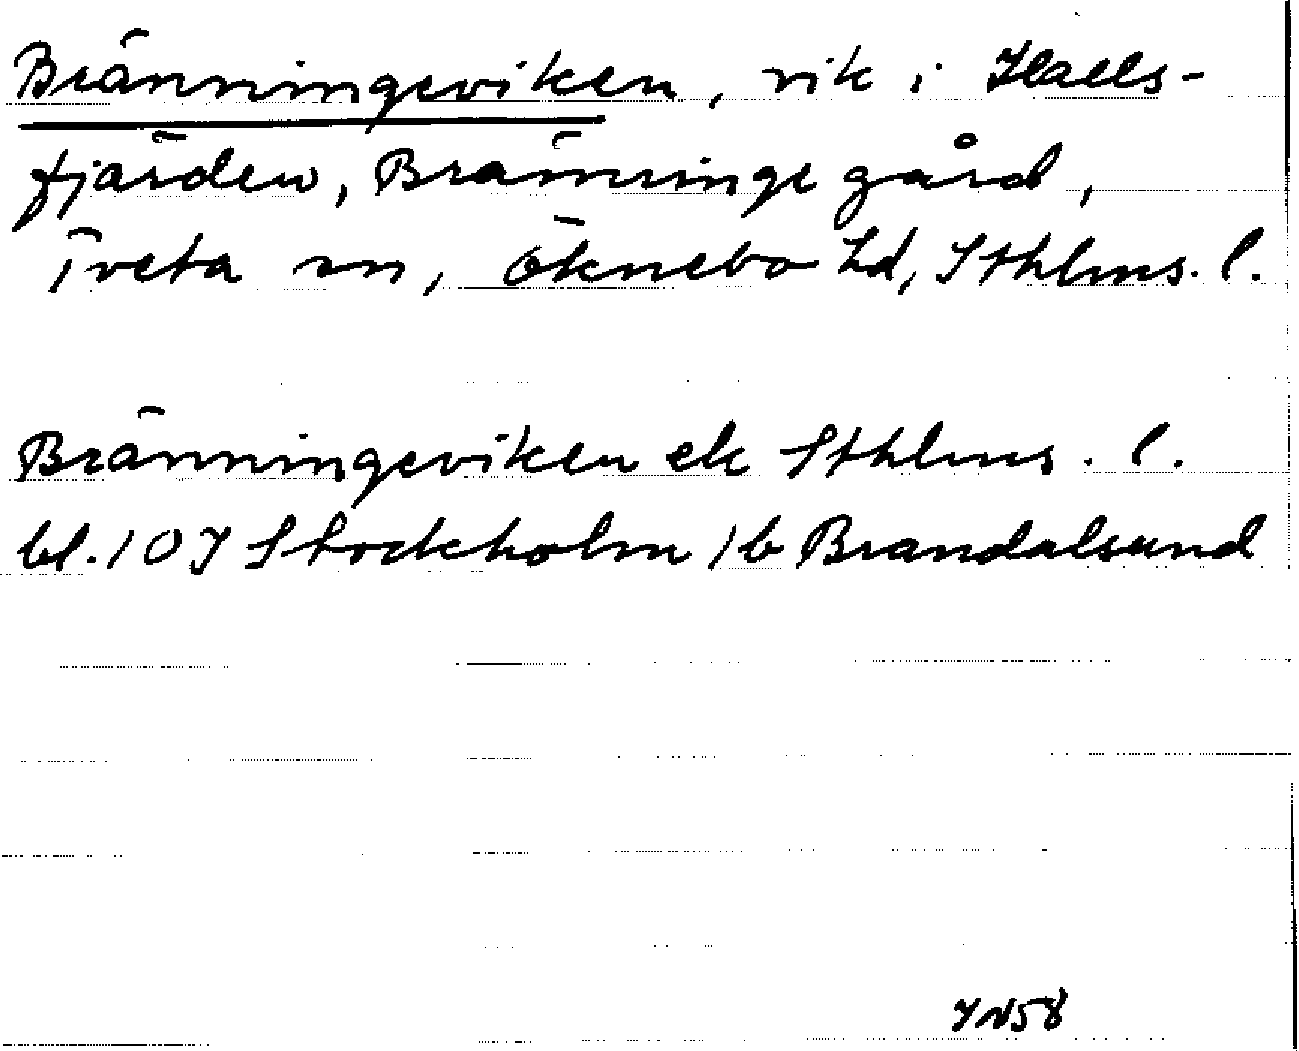 Bränningeviken, vik i Halls-
fjärden, Bränninge gård,
Tveta sn, Öknebo hd, Sthlms. l.
Bränningeviken ek Sthlms. l.
bl. 10J Stockholm 1b Brandalsund